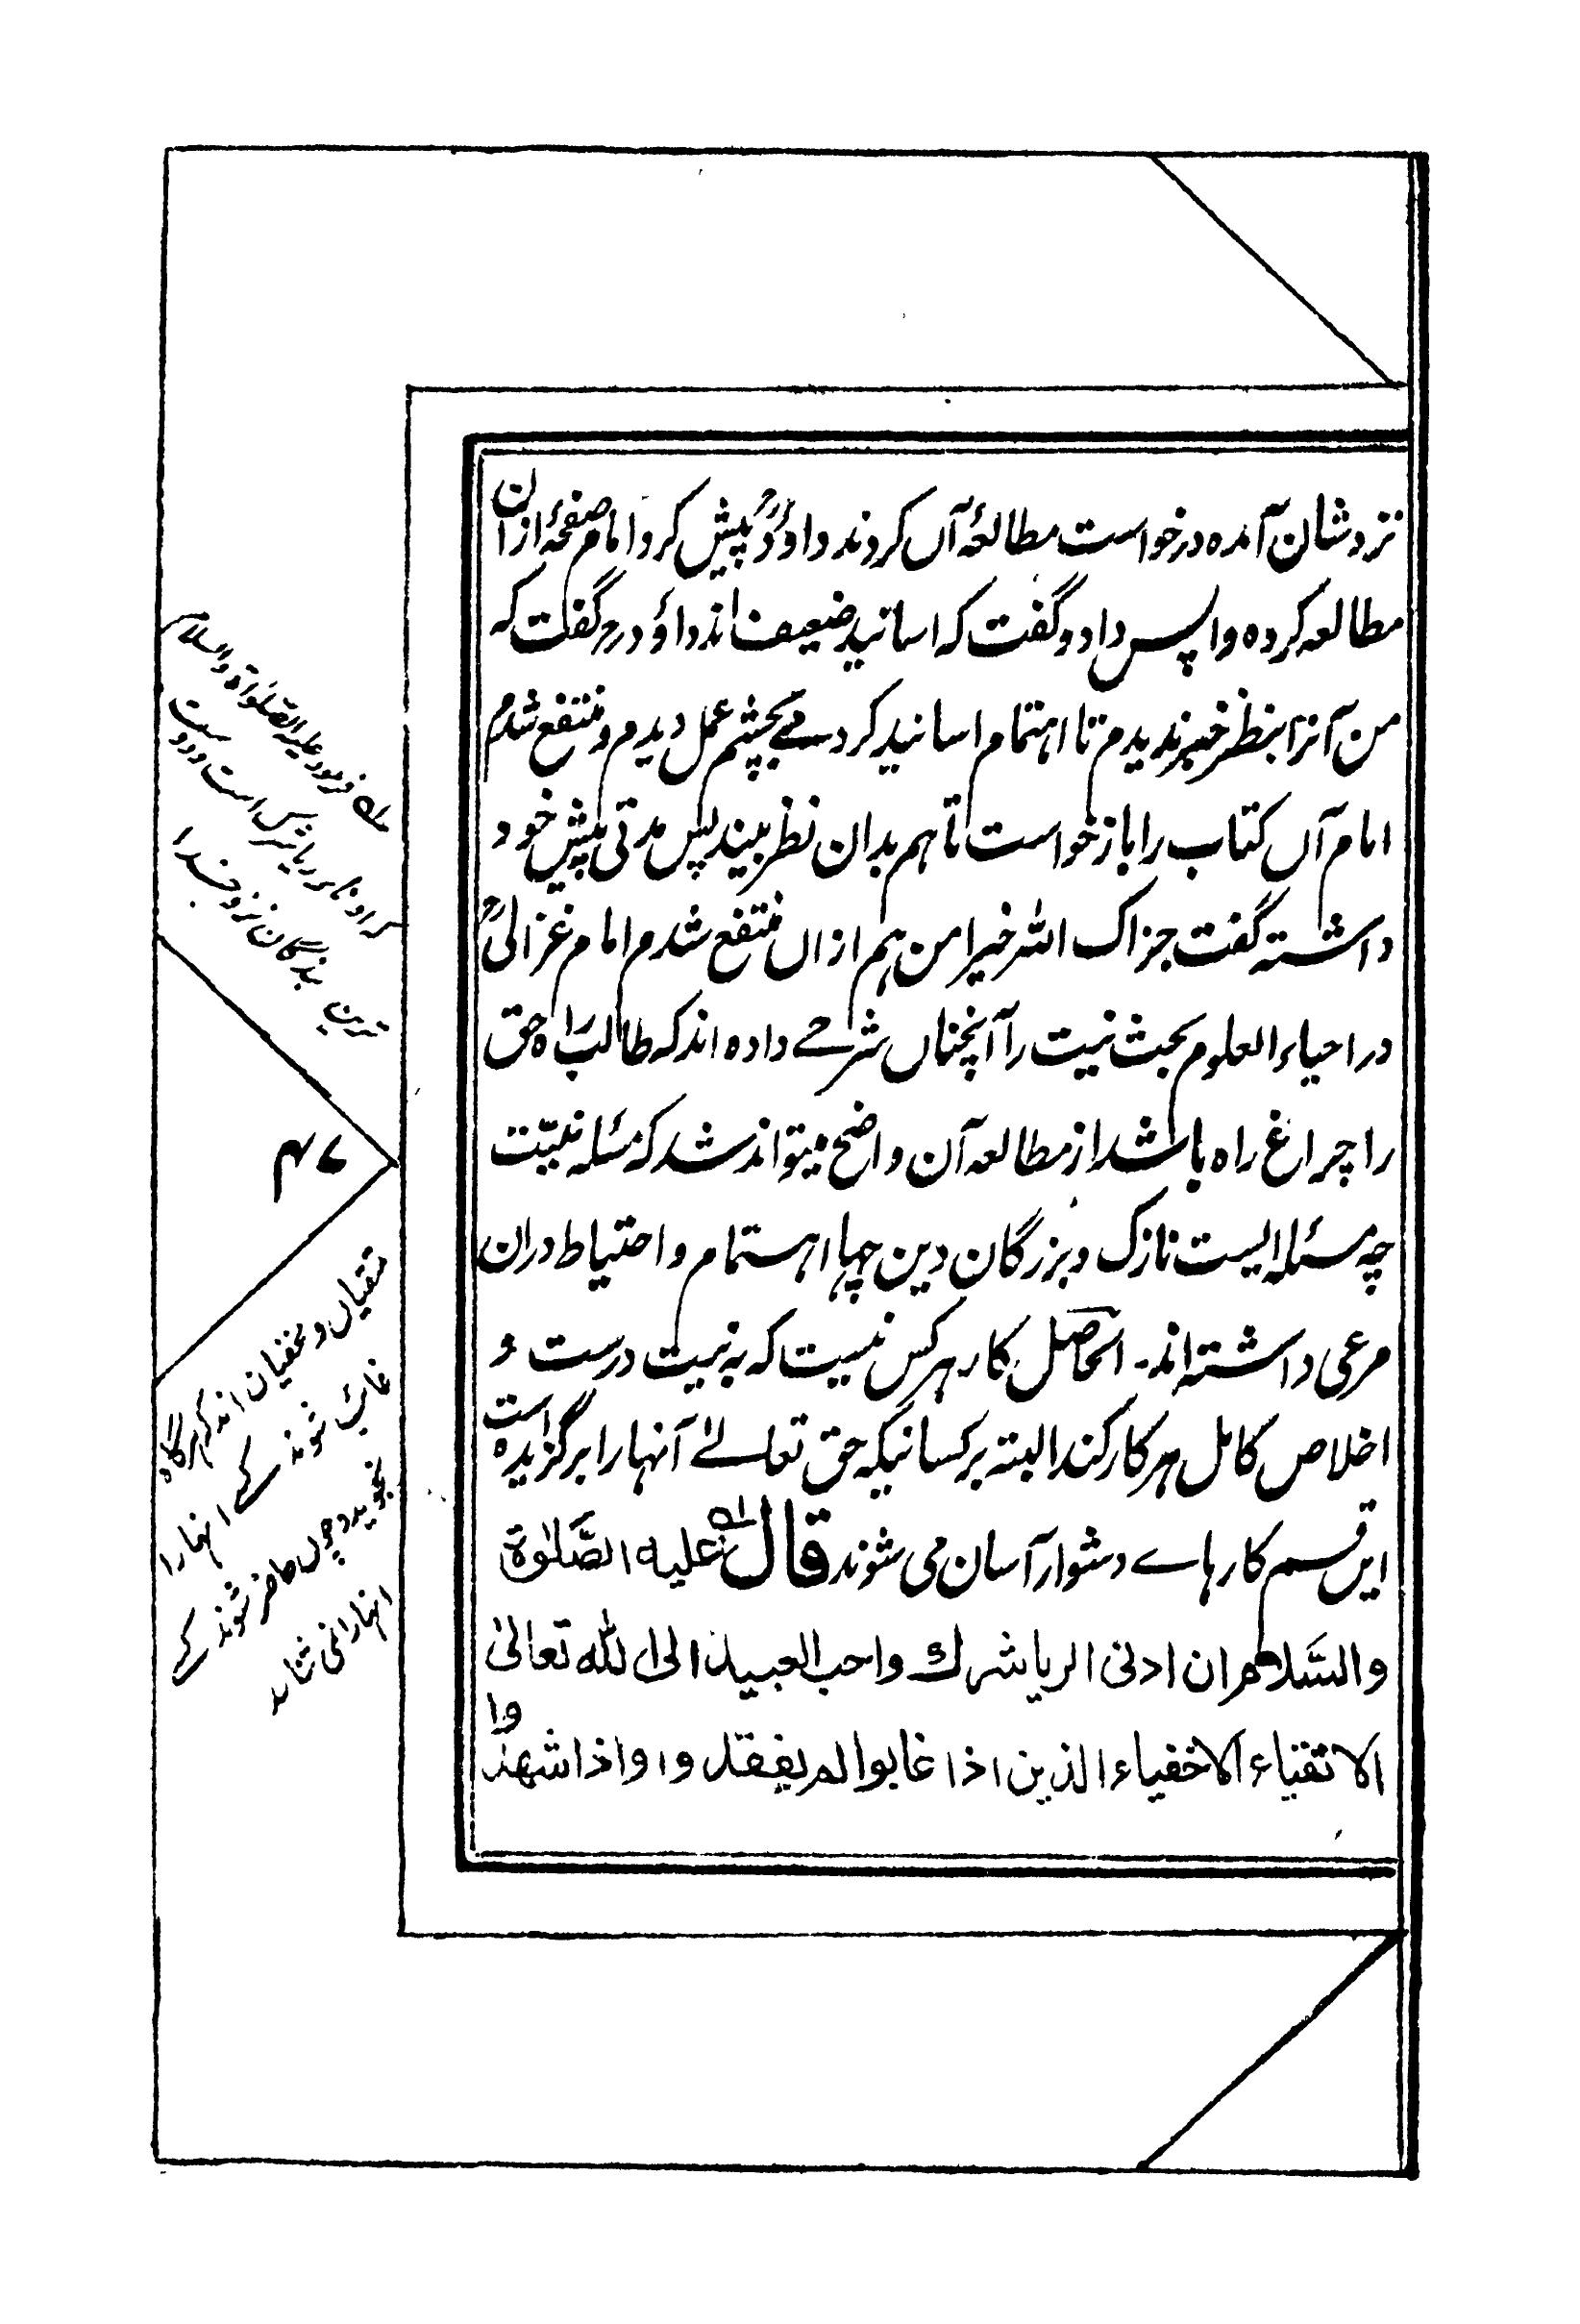 نزدشان آمده درخواست مطالعۂ آں کردند داؤدؒ پیش کرد امام صفحۂ ازان
مطالعہ کردہ واپس داد و گفت کہ اسانید ضعیف اند داؤدؒ گفت کہ
من آنرا بنظر خبر ندیدم تا اہتمام اسانید کردمے بچشم عمل دیدم و منتفع شدم
امام آں کتاب را باز خواست تا ہم بدان نظر بیند پس مدتی پیش خود
داشتہ گفت جزاک اللہ خیرا من ہم ازاں منتفع شدم امام غزالیؒ
در احیاء العلوم بحث نیت را آنچناں شرحے دادہ اند کہ طالب راہ حق
را چراغ راہ باشد از مطالعہ آن واضح میتواند شد کہ مسئلہ نیّت
چہ مسئلہ ایست نازک و بزرگان دین چہا اہتمام و احتیاط دران
مرعی داشتہ اند۔ الحاصل کار ہر کس نیست کہ بہ نیت درست و
اخلاص کامل ہر کار کند البتہ بر کسانیکہ حق تعالےٰ آنہا را برگزیدہ است
ایں قسم کارہاے دشوار آسان می شوند قال علیہ الصَّلٰوۃ
والسَّلام ان ادنی الریا شرك واحب العبید الی اللہ تعالیٰ
الاتقیاء الاخفیاء الذین اذا غابوا لم یفقدوا واذا شهدوا
فرمود علیہ الصلوٰۃ والسلام
کہ ادنا تر ریا شرک است و دوست
ترین بندگان نزد خدا
۴۷
متقیاں و مخفیان اند کہ ہرگاہ
غائب شوند کسے انہا را
نجوید و چوں حاضر شوند کسے
انہا را نمی شناسد